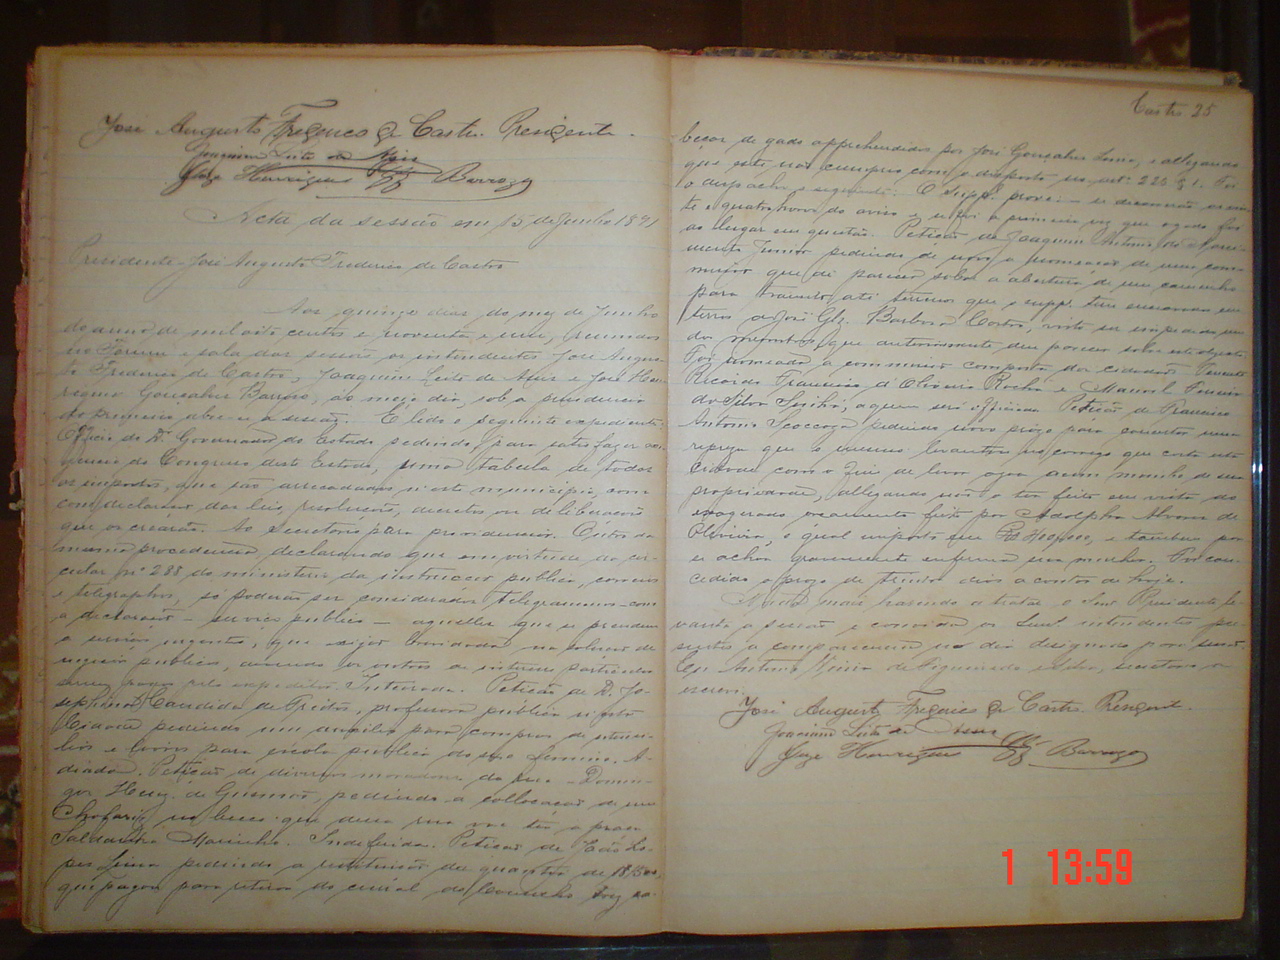 José Augusto Frederico de Castro. Presidente.
Joaquim Leite de Assis
Joze Henrriques Glz Barrozo
Acta da sessão em 15 de Junho 1891
Presidente - José Augusto Frederico de Castro
Aos quinze dias do mez de Junho
do anno de mil oito centos e noventa e um, reunidos
no Forum e sala das sessões os intendentes José Augus-
to Frederico de Castro, Joaquim Leite de Assis e José Hen-
rique Gonsalves Barroso, ao meio dia, sob a presidencia
do primeiro abre-se a sessão. É lido o seguinte expediente:
Officio do Dr. Governador do Estado pedindo, para satisfazer
do Congresso deste Estado, uma tabela de todos
os impostos, que são arrecadados n'este municipio, com
declaração das leis, resoluções, decretos ou deliberações
que os crearão. Ao secretario para providenciar. Outro da
mesma procedencia, declarando que em virtude da cir-
cular nº 288 do ministerio da instrucção publica, correios
e telegraphos, só poderão ser considerados telegrammas com
a declaração - serviço publico - aquelles que se prendem
a serviços urgentes, que exijão brevidade na solução de
negocios publicos, devendo os outros de interesse particular
serem pagos pelo expeditor. Inteirada. Petição de D. Jo-
sephina Candida de Freitas, professora publica n'esta
Cidade pedindo um auxilio para compra de utensi-
lios e livros para escola publica do sexo feminino. A-
diada. Petição de diversos moradores da rua - Domin-
gos de Gusmão, pedindo a collocação de um
Chafariz no becco que dessa rua vae ter a praça
Saldanha Marinho. Indeferida. Petição de João Lo-
pes Lima pedindo a restituição da quantia de
que pagou para retirar do curral do Conselho trez ca-
Castro 25
beças de gado apprehendidas por José Gonsalves Lima, e allegando
que este não cumprio com o disposto no artº 225 § 1. Foi
o despacho o seguinte: O Suppe prove - se decorrerão as vin-
te e quatro horas do aviso e se foi a primeira vez que o gado foi
ao lugar em questão. Petição de Joaquim Antonio do Nasci-
mento Junior pedindo de novo a nomeação de uma com-
missão que dê parecer sobre a abertura de um caminho
para transito até terrenos que o suppe tem
terras a José Glz. Barbosa Cortes, visto ser impedido um
dos membros, que anteriormente deu parecer sobre este objecto.
Foi nomeada a commissão composta dos cidadãos Tenente
Ricardo Francisco d'Oliveira Rocha e Manoel Pereira
da Silva Senhô, a quem será officiado. Petição de Francisco
Antonio Scoccozza pedindo novo prazo para concertar uma
represa que o mesmo levantou no corrego que corta esta
Cidade com o fim de levar agua a um moinho de sua
propriedade, allegando não o ter feito em vista do
exagerado orçamento feito por Adolpho Alvaro de
Oliveira, o qual importa em e tambem por
se achar gravemente enferma sua mulher. Foi con-
cedido o prazo de trinta dias a contar de hoje.
Nada mais havendo a tratar o Senr. Presidente le-
vanta a sessão e convida os Senrs. intendentes pre-
sentes a comparecerem no dia designado para sessão.
Eu Antonio Vieira de Figueiredo secretario o
escrevi.
José Augusto Frederico de Castro. Presidente.
Joaquim Leite de Assis
Joze Henrriques Glz Barrozo
1 13:59